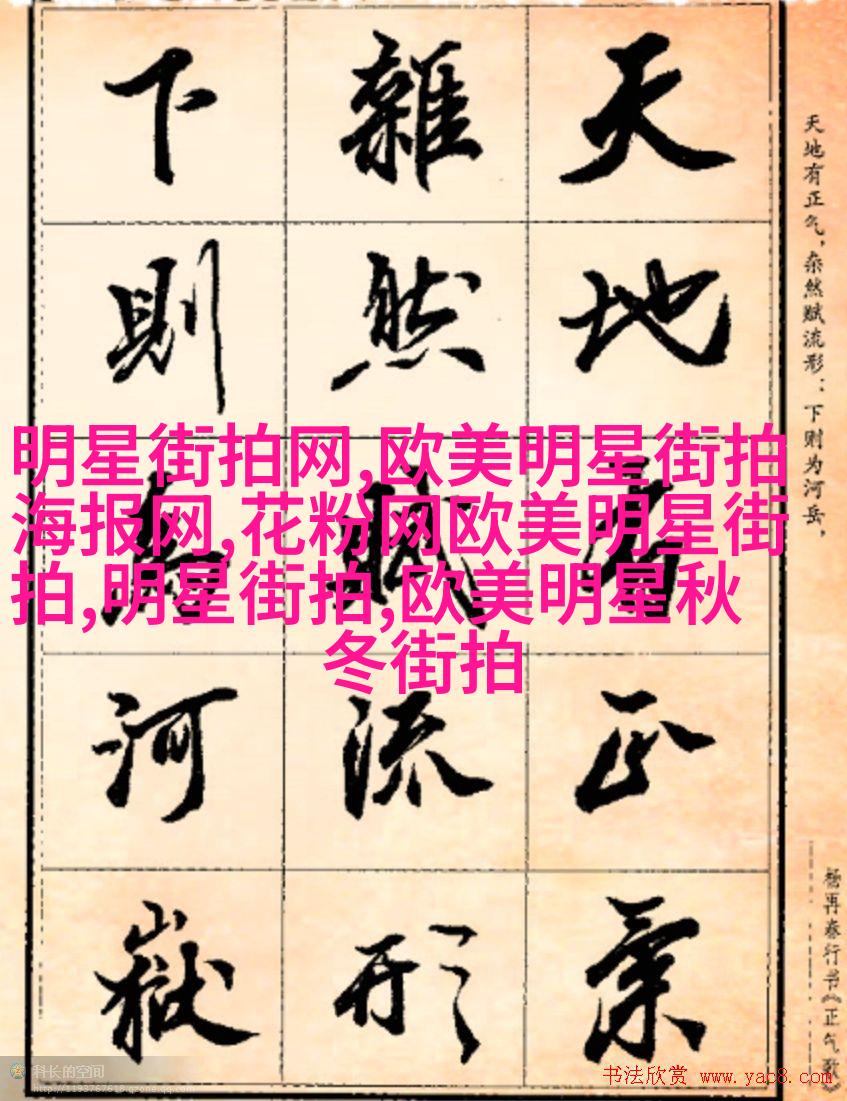 天地有正氣
雜然賦流形
下則為河嶽
天地有正气，杂然赋流形：下则为河岳，
杨再春行书《正气歌》
明星街拍网,欧美明星街拍
海报网,花粉网欧美明星街
拍,明星街拍,欧美明星秋
冬街拍
科长的空间
http://1193767618.qzone.qq.com
书法欣赏 www.yac8.com